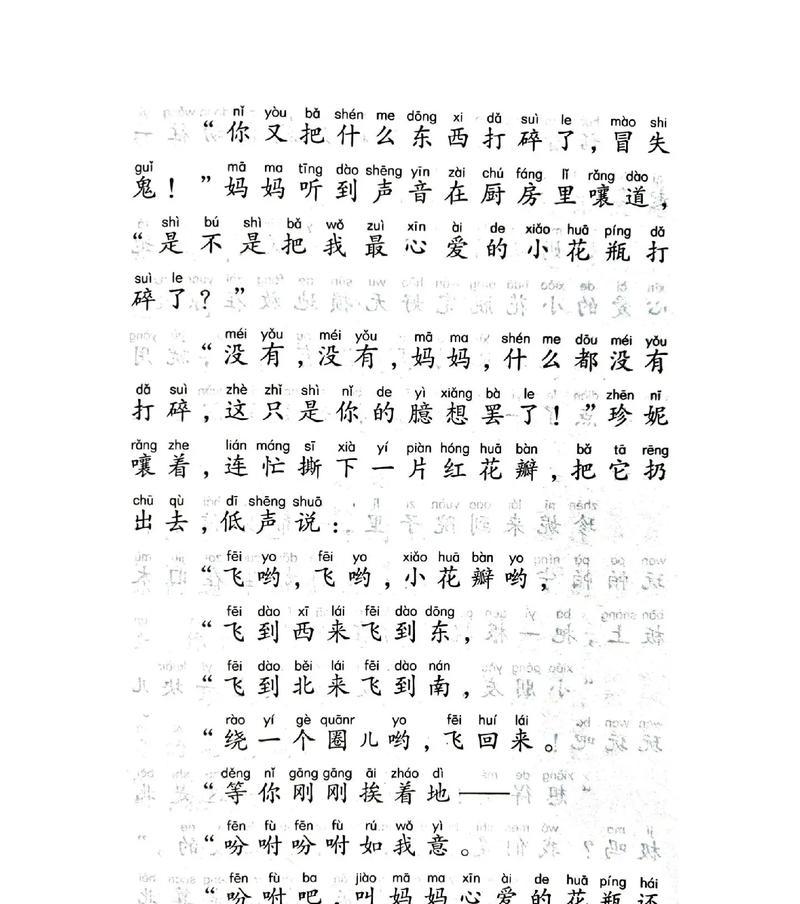 nǐ yòu bǎ shén me dōng xi dǎ suì le mào shi
“你又把什么东西打碎了，冒失
guǐ mā ma tīng dào shēng yīn zài chú fáng lǐ rǎng dào
鬼！”妈妈听到声音在厨房里嚷道，
shì bú shì bǎ wǒ zuì xīn ài de xiǎo huā píng dǎ
“是不是把我最心爱的小花瓶打
suì le
碎了？”
méi yǒu méi yǒu mā ma shén me dōu méi yǒu
“没有，没有，妈妈，什么都没有
dǎ suì zhè zhǐ shì nǐ de yì xiǎng bà le zhēn nī
打碎，这只是你的臆想罢了！”珍妮
rǎng zhe lián máng sī xià yí piàn hóng huā bàn bǎ tā rēng
嚷着，连忙撕下一片红花瓣，把它扔
chū qù dī shēng shuō
出去，低声说：
fēi yo fēi yo xiǎo huā bàn yo
“飞哟，飞哟，小花瓣哟，
fēi dào xī lái fēi dào dōng
“飞到西来飞到东，
fēi dào běi lái fēi dào nán
“飞到北来飞到南，
rào yí gè quānr yo fēi huí lái
“绕一个圈儿哟，飞回来。
děng nǐ gāng gāng āi zháo dì
“等你刚刚挨着地——
fēn fù fēn fù rú wǒ yì
“吩咐吩咐如我意。
fēn fù ba jiào mā ma xīn ài de huā píng hái
“吩咐吧，叫妈妈心爱的花瓶还